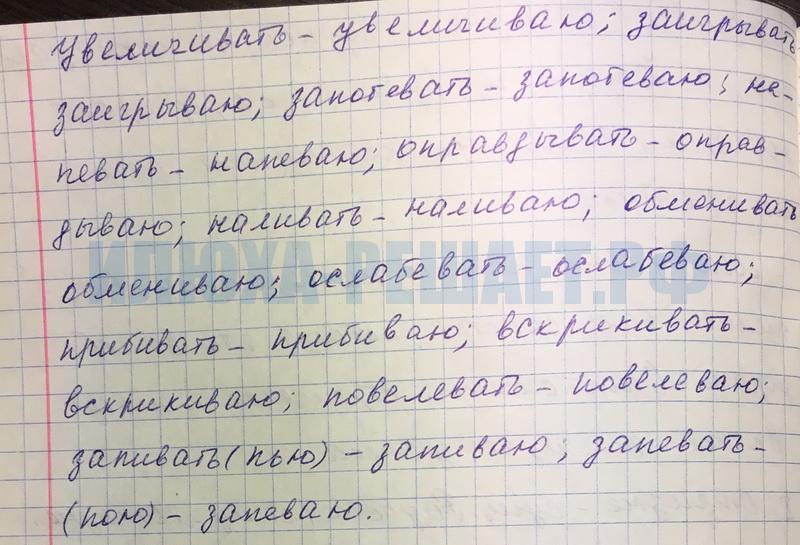 Увеличивать - увеличиваю; заигрывать
заигрываю; запотевать - запотеваю; на-
певать - напеваю; оправдывать - оправ-
дываю; наливать - наливаю; обменивать
ИЛЮХА-РЕШАЕТ.РФ
обмениваю; ослабевать - ослабеваю;
прибивать - прибиваю; вскрикивать -
вскрикиваю; повелевать - повелеваю;
запивать (пью) - запиваю; запевать -
(пою) - запеваю.